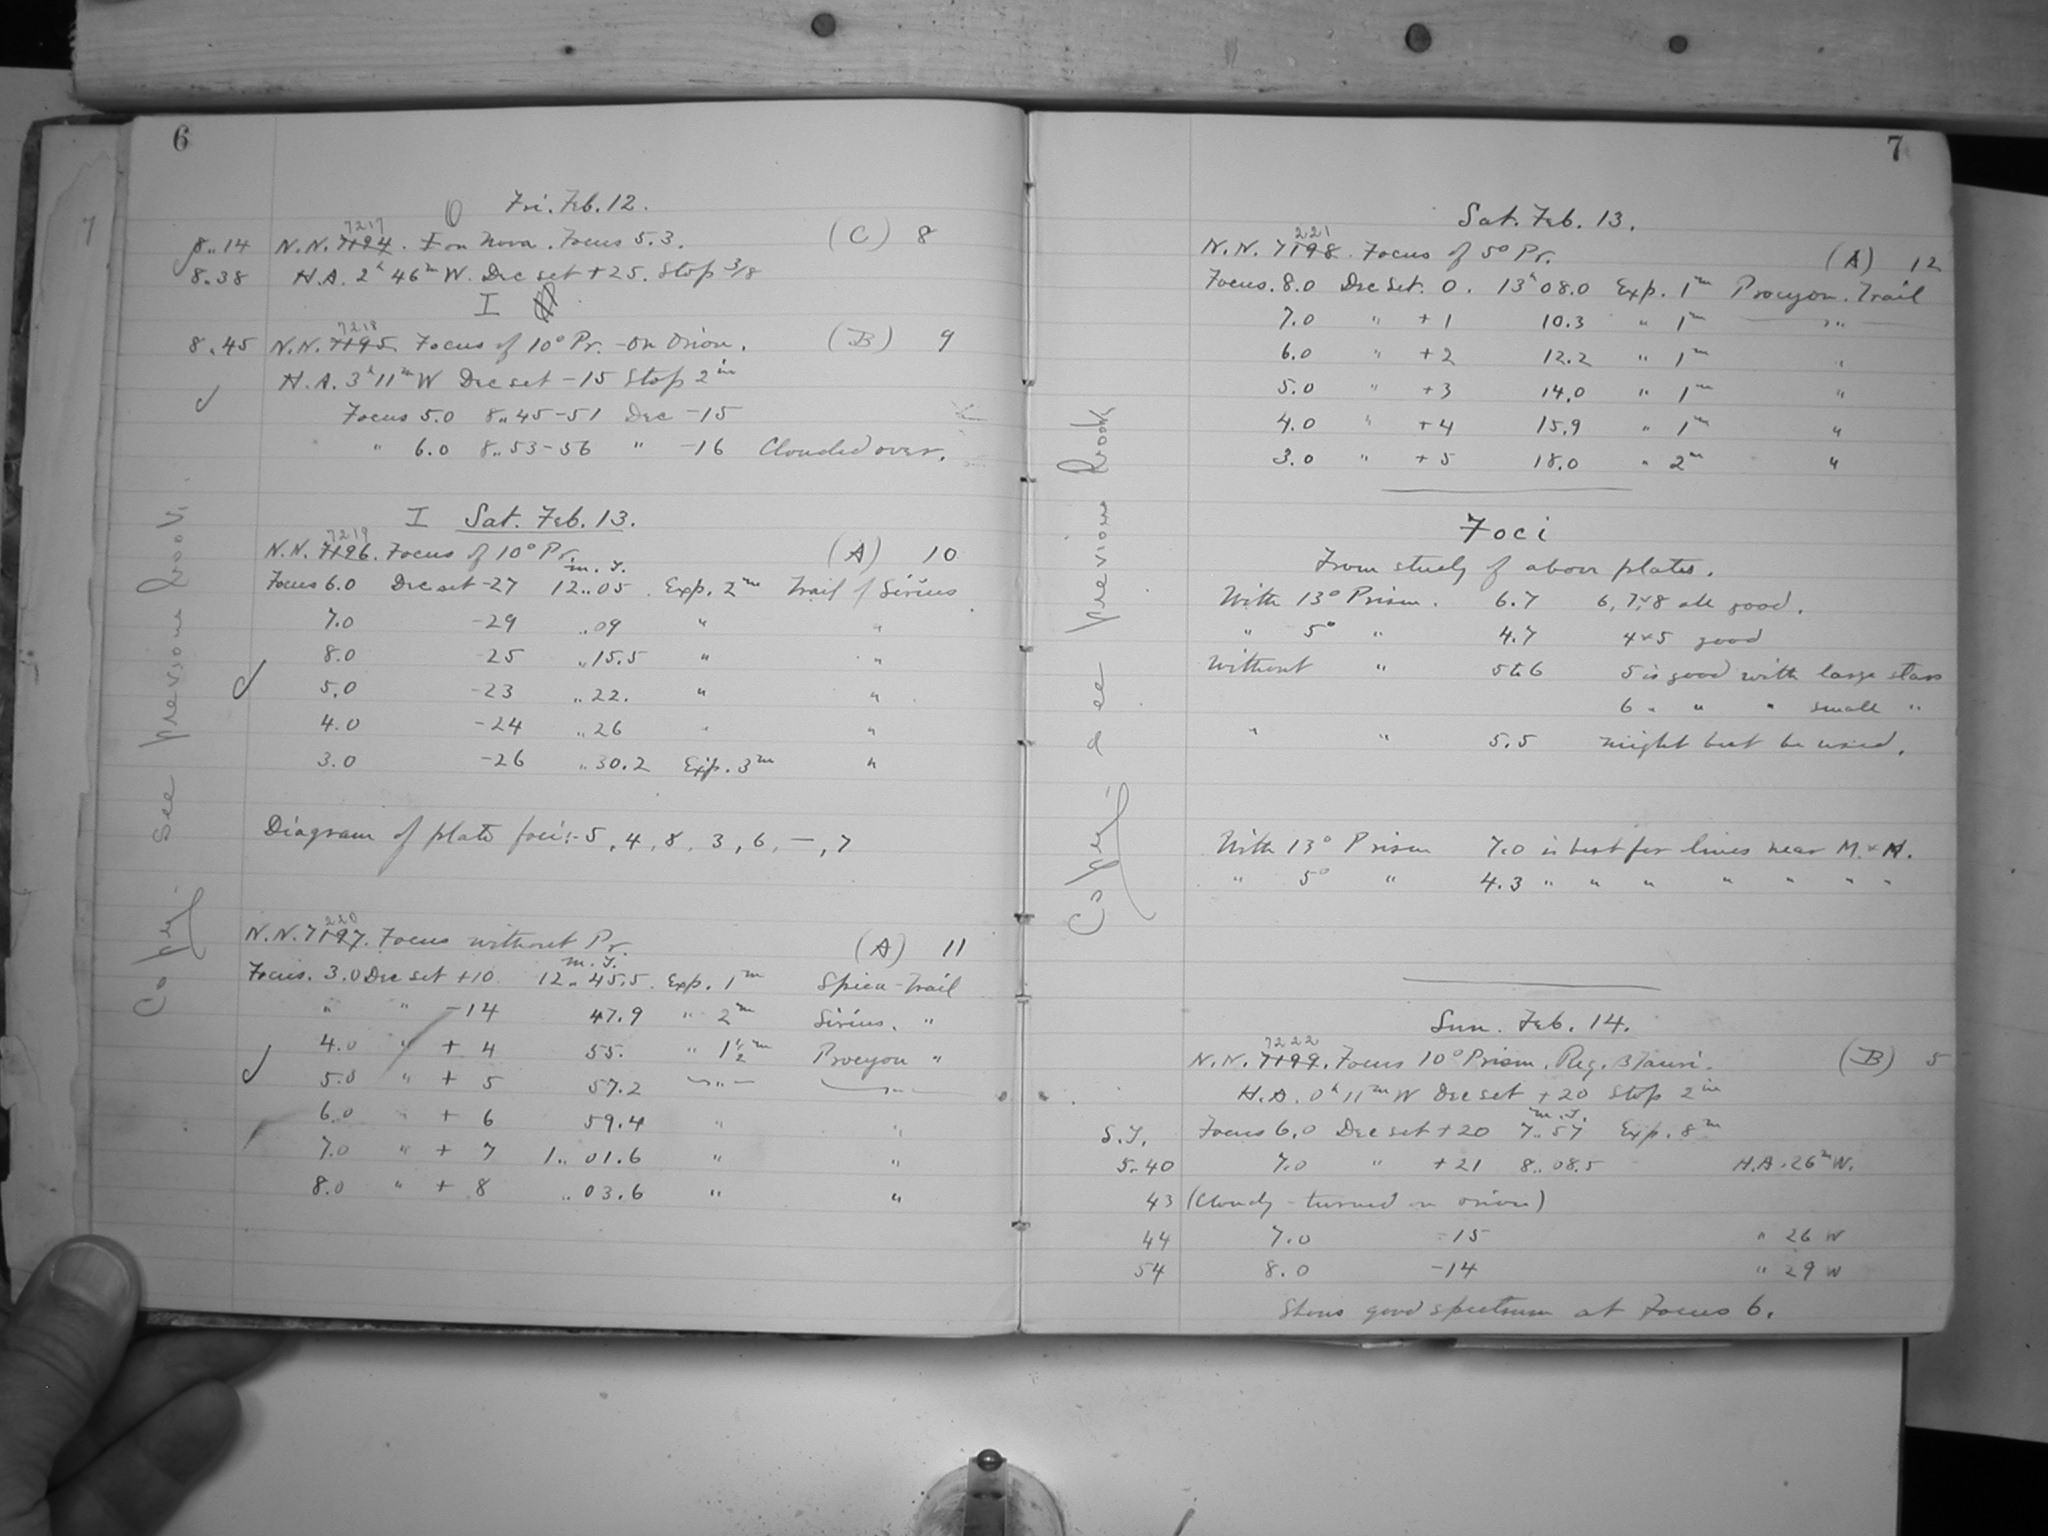 6
Fri. Feb. 12.
7217
8..14 N.N. 7194. I on Nova. Focus 5.3. (C) 8
8.38 H.A. 2h 46m W. Dec set +25. Stop 3/8
I
7218
8.45 N.N. 7195. Focus of 10° Pr. - on Orion. (B) 9
H.A. 3h 11m W Dec set -15 Stop 2in
Focus 5.0 8..45-51 Dec -15
" 6.0 8..53-56 " -16 Clouded over.
I Sat. Feb. 13.
7219
N.N. 7196. Focus of 10° Pr. (A) 10
m.T.
Focus 6.0 Dec set -27 12..05. Exp. 2m Trail of Sirius
7.0 -29 ..09 " "
8.0 -25 ..15.5 " "
5.0 -23 ..22. " "
4.0 -24 ..26 " "
3.0 -26 ..30.2 Exp. 3m "
Diagram of plate foci:- 5, 4, 8, 3, 6, —, 7
220
N.N. 7197. Focus without Pr. (A) 11
m.T.
Focus. 3.0 Dec set +10 12..45.5. Exp. 1m Spica - Trail
" " -14 47.9 " 2m Sirius. "
4.0 " + 4 55. " 1 1/2m Procyon "
5.0 " + 5 57.2 — " — — " —
6.0 " + 6 59.4 " "
7.0 " + 7 1.. 01.6 " "
8.0 " + 8 ..03.6 " "
Copy. See previous Book.
7
Sat. Feb. 13.
221
N.N. 7198. Focus of 5° Pr. (A) 12
Focus. 8.0 Dec Set. 0. 13h 08.0 Exp. 1m Procyon. Trail
7.0 " +1 10.3 " 1m — " —
6.0 " +2 12.2 " 1m "
5.0 " +3 14.0 " 1m "
4.0 " +4 15.9 " 1m "
3.0 " +5 18.0 " 2m "
Foci
From study of above plates.
With 13° Prism. 6.7 6, 7, & 8 all good.
" 5° " 4.7 4 & 5 good
Without " 5 to 6 5 is good with large stars
6 " " " small "
" " 5.5 might best be used.
With 13° Prism 7.0 is best for lines near M. & H.
" 5° " 4.3 " " " " " " "
Sun. Feb. 14.
7222
N.N. 7199. Focus 10° Prism. Reg. β Tauri. (B) 5
H.A. 0h 11m W Dec set +20 Stop 2in
m.T.
S.T. Focus 6.0 Dec set +20 7..57 Exp. 8m
5..40 7.0 " +21 8..08.5 H.A. 26m W.
43 (Cloudy - turned on Orion)
44 7.0 -15 " 26 W
54 8.0 -14 " 29 W
Shows good spectrum at Focus 6.
Copy. See previous Book
7